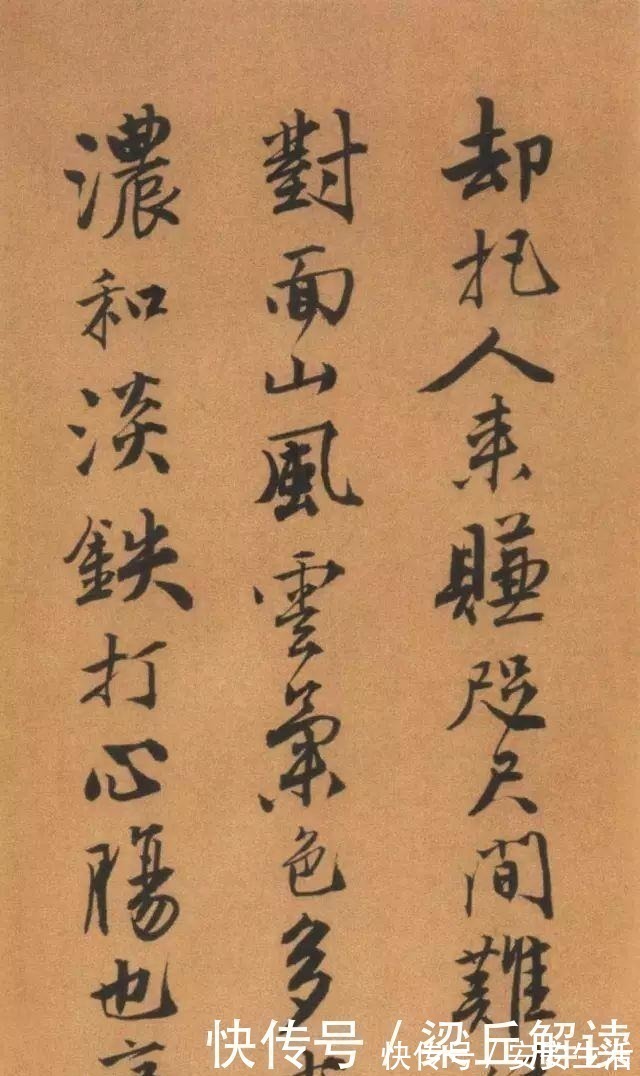 却托人来賺咫尺間難
對面山風雲色多
濃和淡鉄打心腸也
快传号 / 梁丘解读
快传号